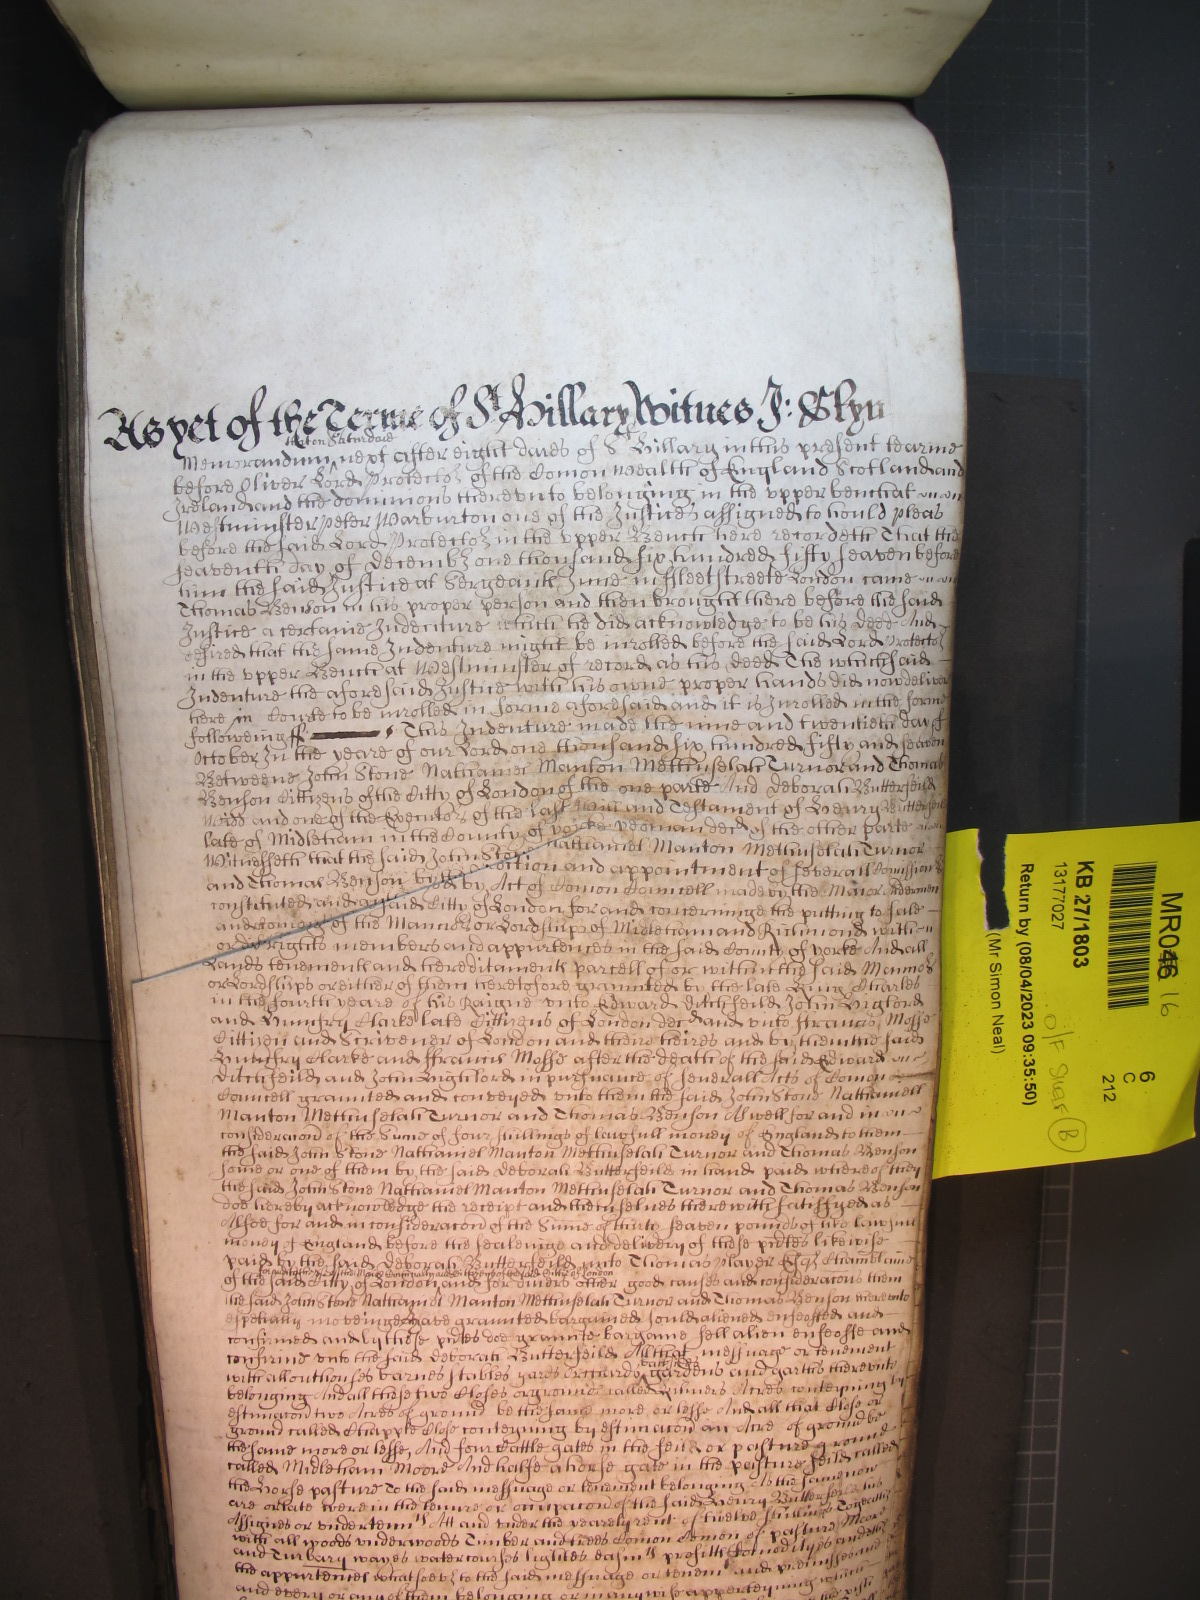 As yet of the Terme of St Hillary Witnes J: Glyn
that on Saturdaie
Memorandum next after eight daies of St Hillary in this present tearme
before Oliver Lord Protector of the Comon Wealth of England Scotland and
Ireland and the dominions thereunto belonging in the upper bench at
Westminster Peter Warburton one of the Justices assigned to hould pleas
before the said Lord Protector in the upper Bench here recordeth That the
seaventh day of December one thousand six hundred fifty seaven before
him the said Justice at Sergeants Inne in ffleetstreete London came
Thomas Benson in his proper person and then brought there before the said
Justice a certaine Indenture which he did acknowledge to be his deed And
desired that the same Indenture might be inrolled before the said Lord Protector
in the upper Bench at Westminster of record as his deed The which said
Indenture the aforesaid Justice with his owne proper hands did now deliver
here in Court to be inrolled in forme aforesaid and it is Inrolled in the forme
following ss This Indenture made the nine and twentieth day of
October In the yeare of our Lord one thousand six hundred fifty and seaven
Betweene John Stone Nathaniel Manton Methuselah Turnor and Thomas
Benson Cittizens of the Citty of London of the one parte And Deborah Butterfeild
Widd and one of the Executors of the last Will and Testament of Henry Butterfeild
late of Midleham in the County of Yorke yeoman decd of the other parte
Witnesseth that the said John Stone Nathaniel Manton Methuselah Turnor
and Thomas Benson by and appointment of severall Comissions
constituted and by Act of Comon Councell made by the Maior Aldermen
and Comons of the said Citty of London for and concerninge the putting to sale
of the Mannors or Lordships of Midleham and Richmond with
rights members and appurtences in the said County of Yorke And all
Lands tenements and hereditaments parcell of or within the said Mannors
or Lordships or either of them heretofore graunted by the late King Charles
in the fourth yeare of his Raigne unto Edward Ditchfeild John Highlord
and Humfry Clarke late Cittizens of London decd and unto ffrancis Mosse
Cittizen and Scrivener of London and theire heires and by them the said
Humfry Clarke and ffrancis Mosse after the death of the said Edward
Ditchfeild and John Highlord in pursuance of severall Acts of Comon
Councell graunted and conveyed unto them the said John Stone Nathaniell
Manton Methuselah Turnor and Thomas Benson Aswell for and in
consideracon of the Sume of four shillings of lawfull money of England to them
the said John Stone Nathaniel Manton Methuselah Turnor and Thomas Benson
some or one of them by the said Deborah Butterfeild in hand paid whereof they
the said John Stone Nathaniel Manton Methuselah Turnor and Thomas Benson
doe hereby acknowledge the receipt and themselves therewith satisfyed as
Alsoe for and in consideracon of the Sume of thirty seaven pounds of like lawfull
money of England before the sealeinge and delivery of these pntes likewise
paid by the said Deborah Butterfeild unto Thomas Player Esqr Chamberlaine
of the said Citty of London and for divers other good causes and consideracons them
the said John Stone Nathaniel Manton Methuselah Turnor and Thomas Benson thereunto
espetially moveinge have graunted bargained sould aliened enfeoffed and
confirmed and by these pntes doe graunte bargaine sell alien enfeoffe and
confirme unto the said Deborah Butterfeild All that messuage or tenement
with all outhouses barnes stables yards orchards gardens and garths thereunto
belonging And all those two Closes or grounds called Acres conteyning by
estimacon two Acres of ground be the same more or lesse And all that Close or
ground called Chapple Close conteyning by estimacon an Acre of ground be
the same more or lesse, And four Cattle gates in the feild or pasture ground
called Midleham Moore And halfe a horse gate in the pasture feild called
the Horse pasture To the said messuage or tenement belonging As the same now
are or late were in the tenure or occupacon of the said Henry Butterfeild his
Assignes or undertennts Att and under the yearely rent of twelve shillings Togeather
with all woods underwoods Timber and trees Comon Comon of pasture Moore
and Turbary wayes watercourses lights easmts profitts Comodityes and
the appurtences whatsoever to the said messuage or tenemt and premisses and
and every or any of them belonging or in any wise apperteyning which
MR046 16
KB 27/1803
13177027
Return by (08/04/2023 09:35:50)
(Mr Simon Neal)
6
C
212
O/F
B